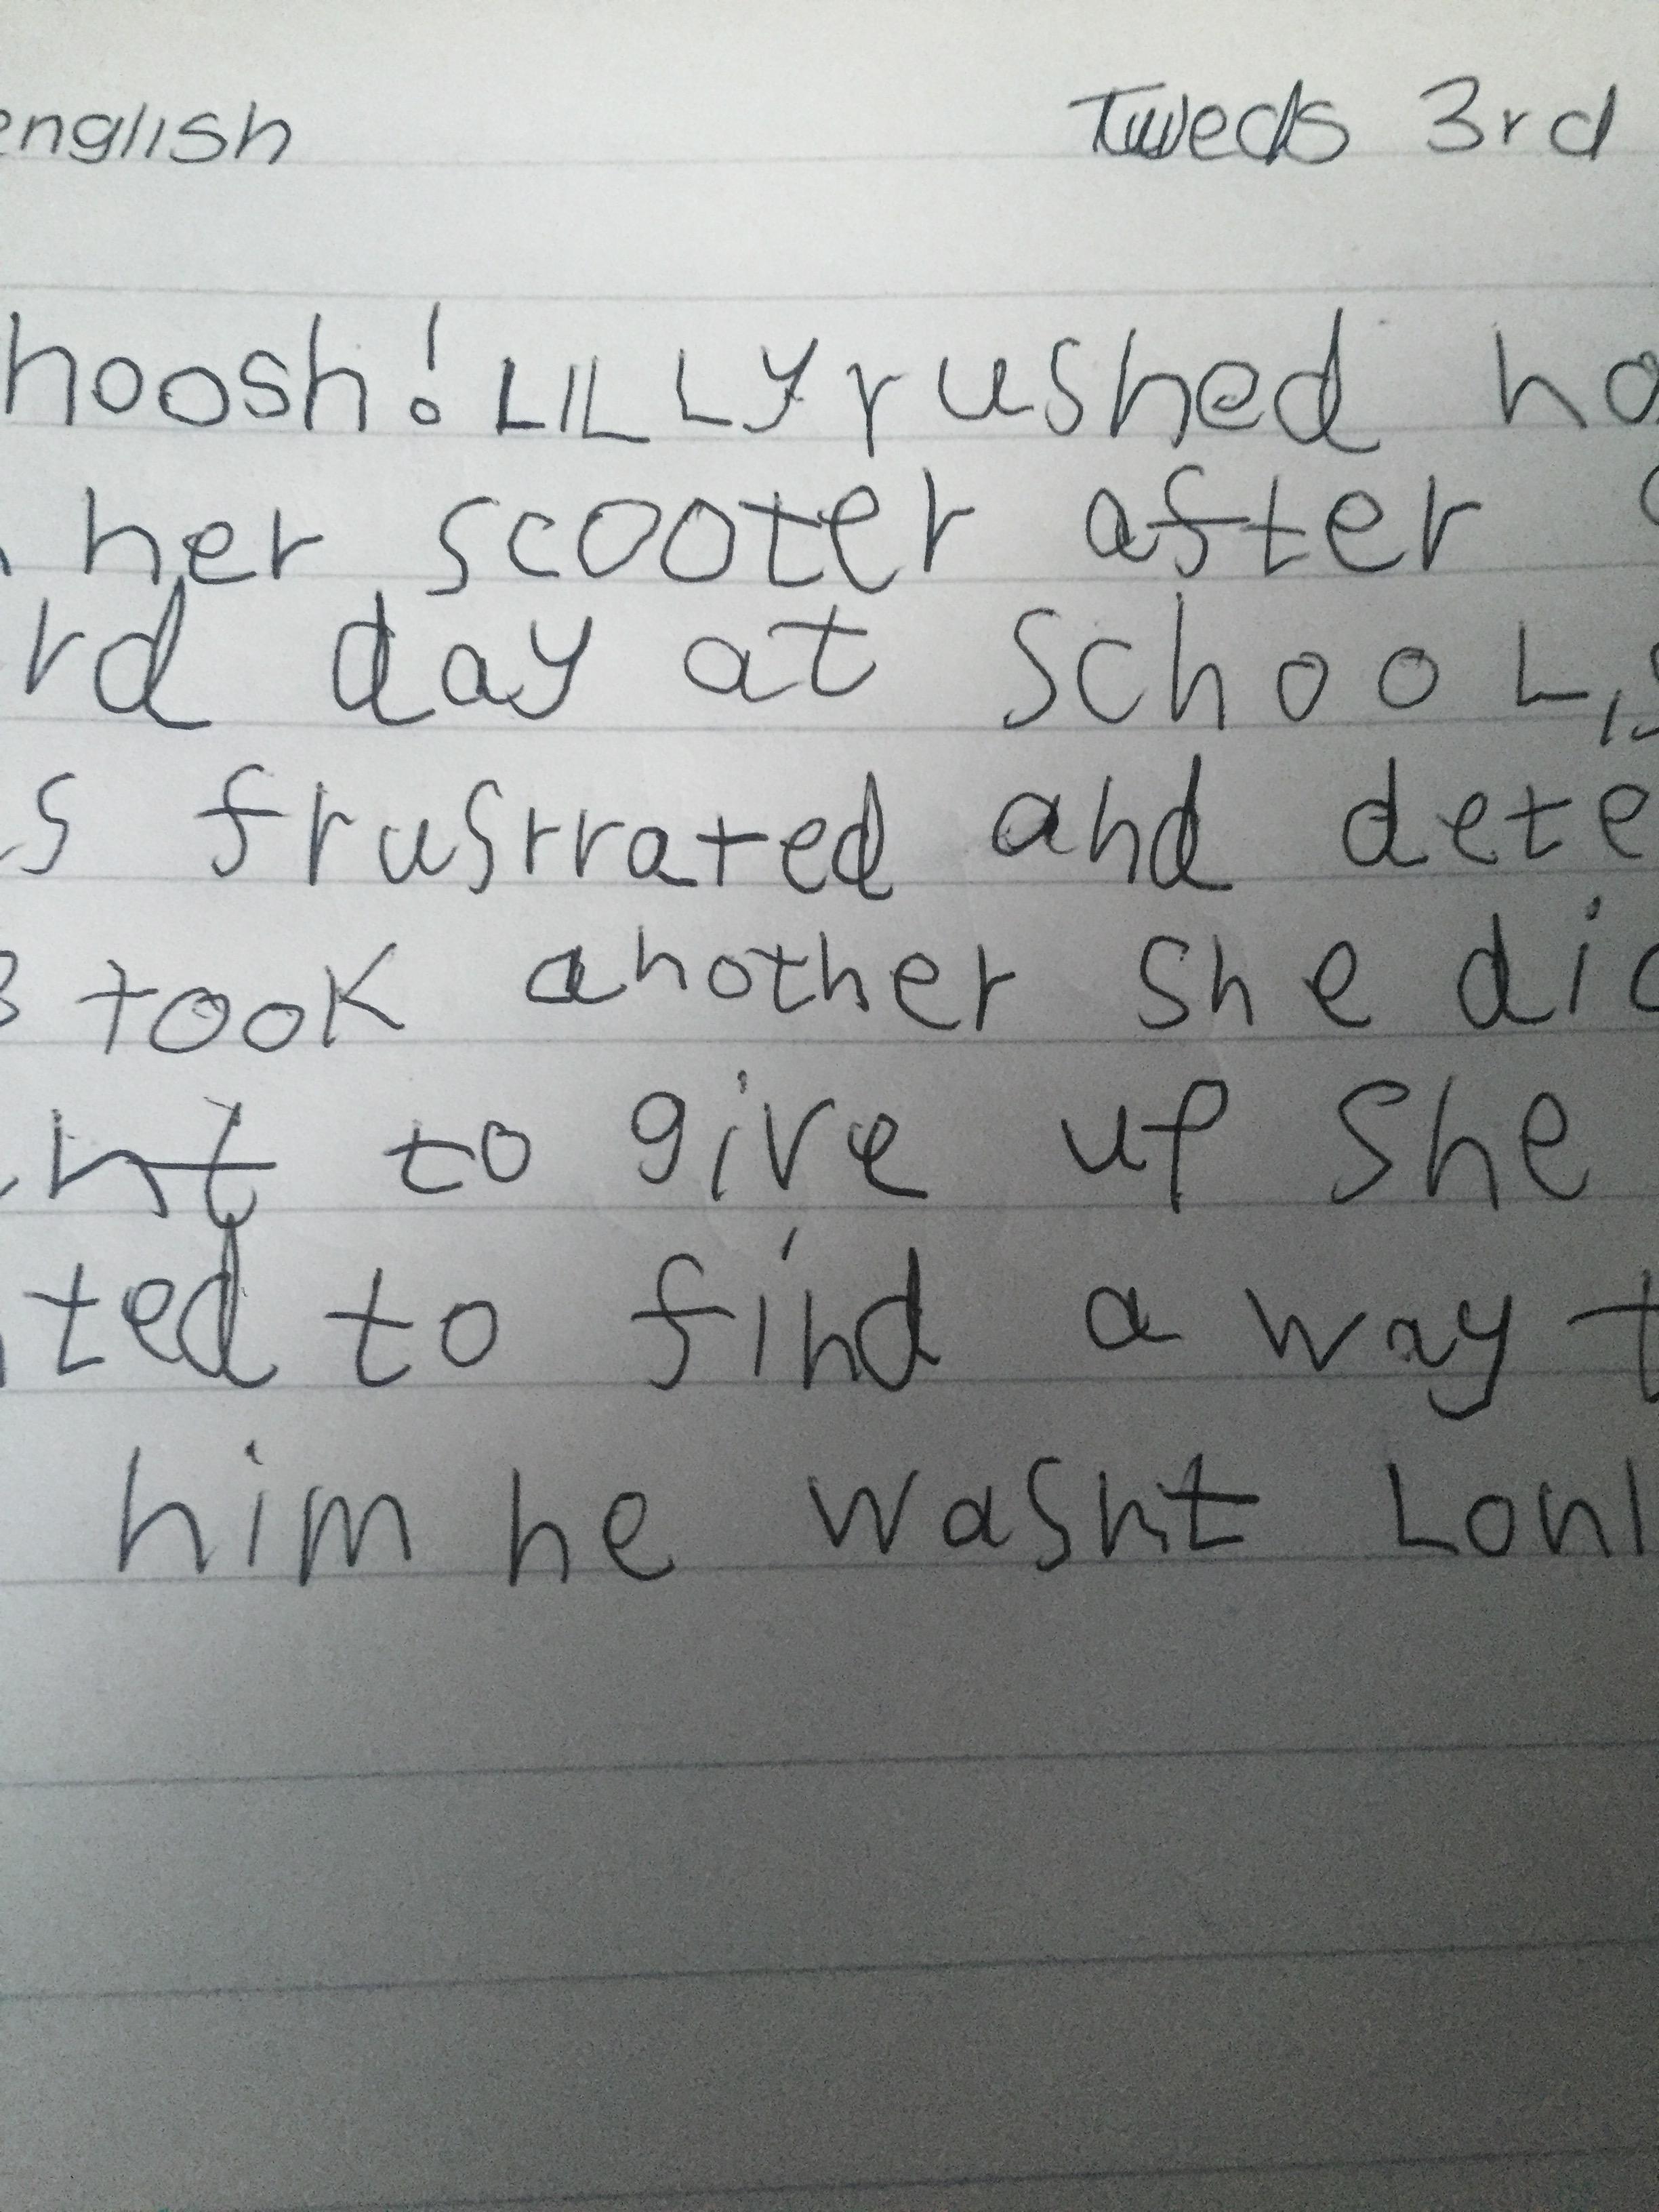 english Tweds 3rd
hoosh! LILLY rushed ho
her scooter after
rd day at school,s
s frusrrated and dete
took another she did
nt to give up she
ted to find a way t
him he wasnt Lonl